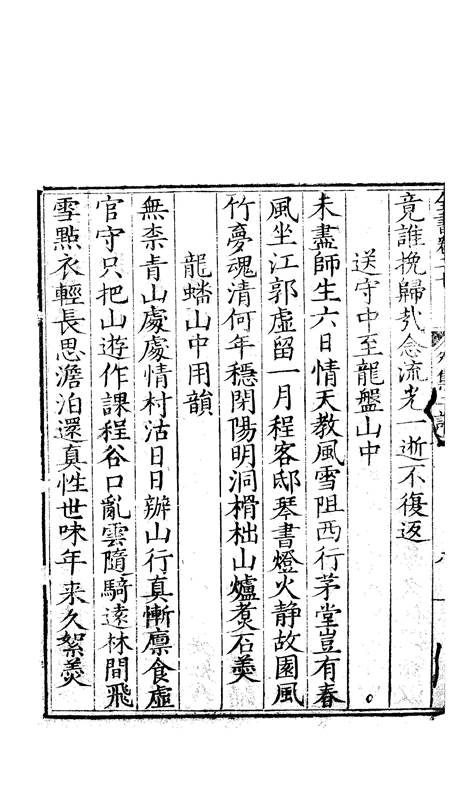 全書卷二十　外集二　詩　八
竟誰挽歸哉念流光一逝不復返
送守中至龍盤山中
未盡師生六日情天教風雪阻西行茅堂豈有春
風坐江郭虛留一月程客邸琴書燈火静故園風
竹夢魂清何年穩閉陽明洞榾柮山爐煑石羮
龍蟠山中用韻
無柰青山處處情村沽日日辦山行真慚廪食虛
官守只把山遊作課程谷口亂雲隨騎逺林間飛
雪點衣輕長思澹泊還真性世味年来久絮羮